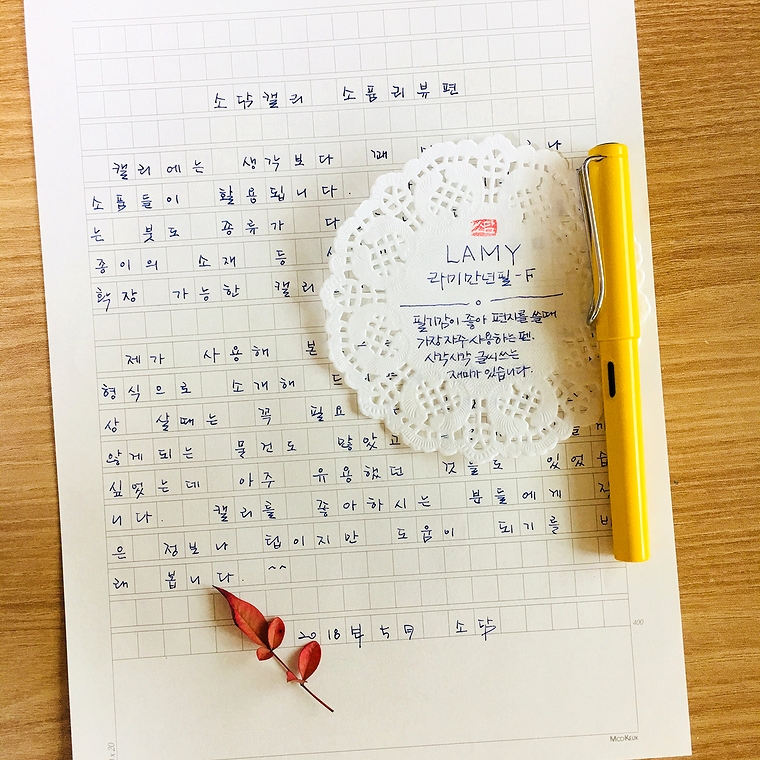 소닭캘리 소품리뷰편
캘리에는 생각보다 꽤
소품들이 활용됩니다.
는 붓도 종류가 다
종이의 소재 등
확장 가능한 캘리
제가 사용해 본
형식으로 소개해 드
상 살때는 꼭 필요
않게 되는 물건도 많았고
싶었는데 아주 유용했던 것들도 있었습
니다. 캘리를 좋아하시는 분들에게 작
은 정보나 팁이지만 도움이 되기를 바
래 봅니다. ^^
2018년 5月 소닭
LAMY
라미만년필-F
필기감이 좋아 편지를 쓸때
가장 자주 사용하는 펜.
사각사각 글씨쓰는
재미가 있습니다.
400
MOOKEUK
x 20